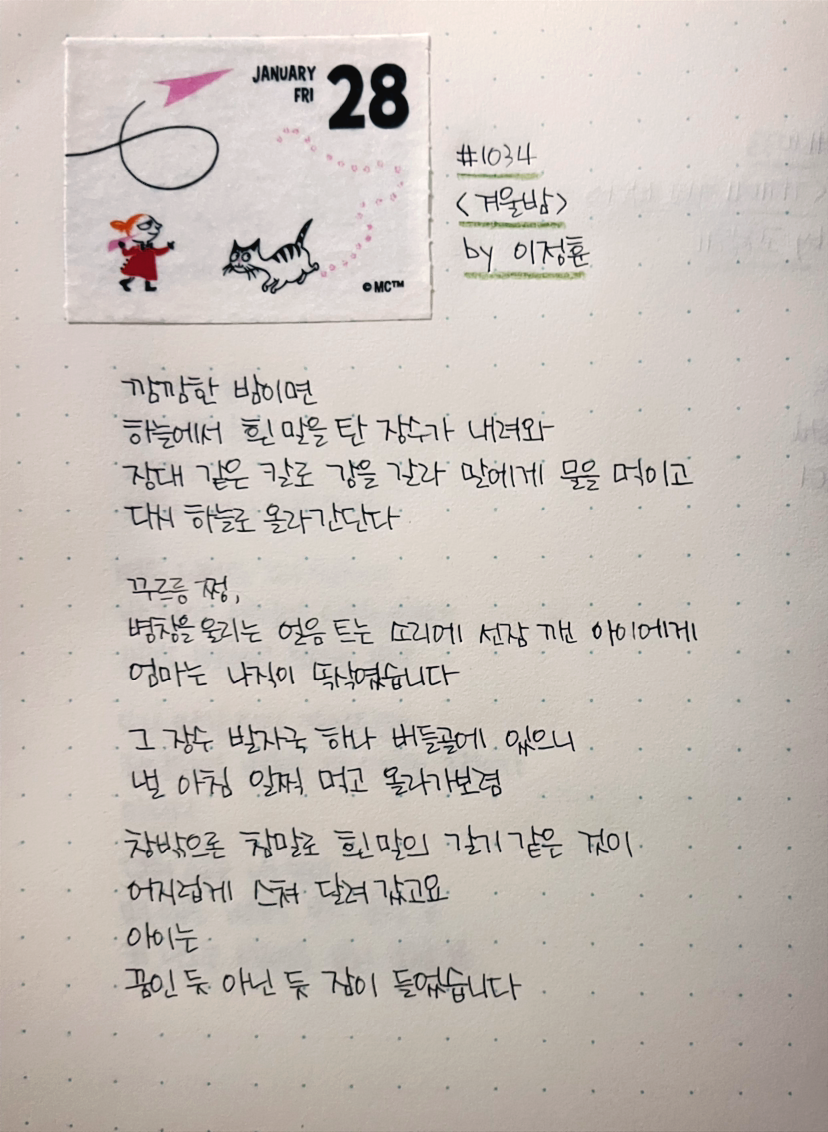 JANUARY
FRI
28
©MC™
#1034
<겨울밤>
by 이정훈
깜깜한 밤이면
하늘에서 흰 말을 탄 장수가 내려와
장대 같은 칼로 강을 갈라 말에게 물을 먹이고
다시 하늘로 올라간단다
꾸르릉 쩡,
병창을 울리는 얼음 트는 소리에 선잠 깬 아이에게
엄마는 나직이 똑삭였습니다
그 장수 발자국 하나 버들골에 있으니
낼 아침 일찍 먹고 올라가보렴
창밖으론 참말로 흰 말의 갈기 같은 것이
어지럽게 스쳐 달려 갔고요
아이는
꿈인 듯 아닌 듯 잠이 들었습니다